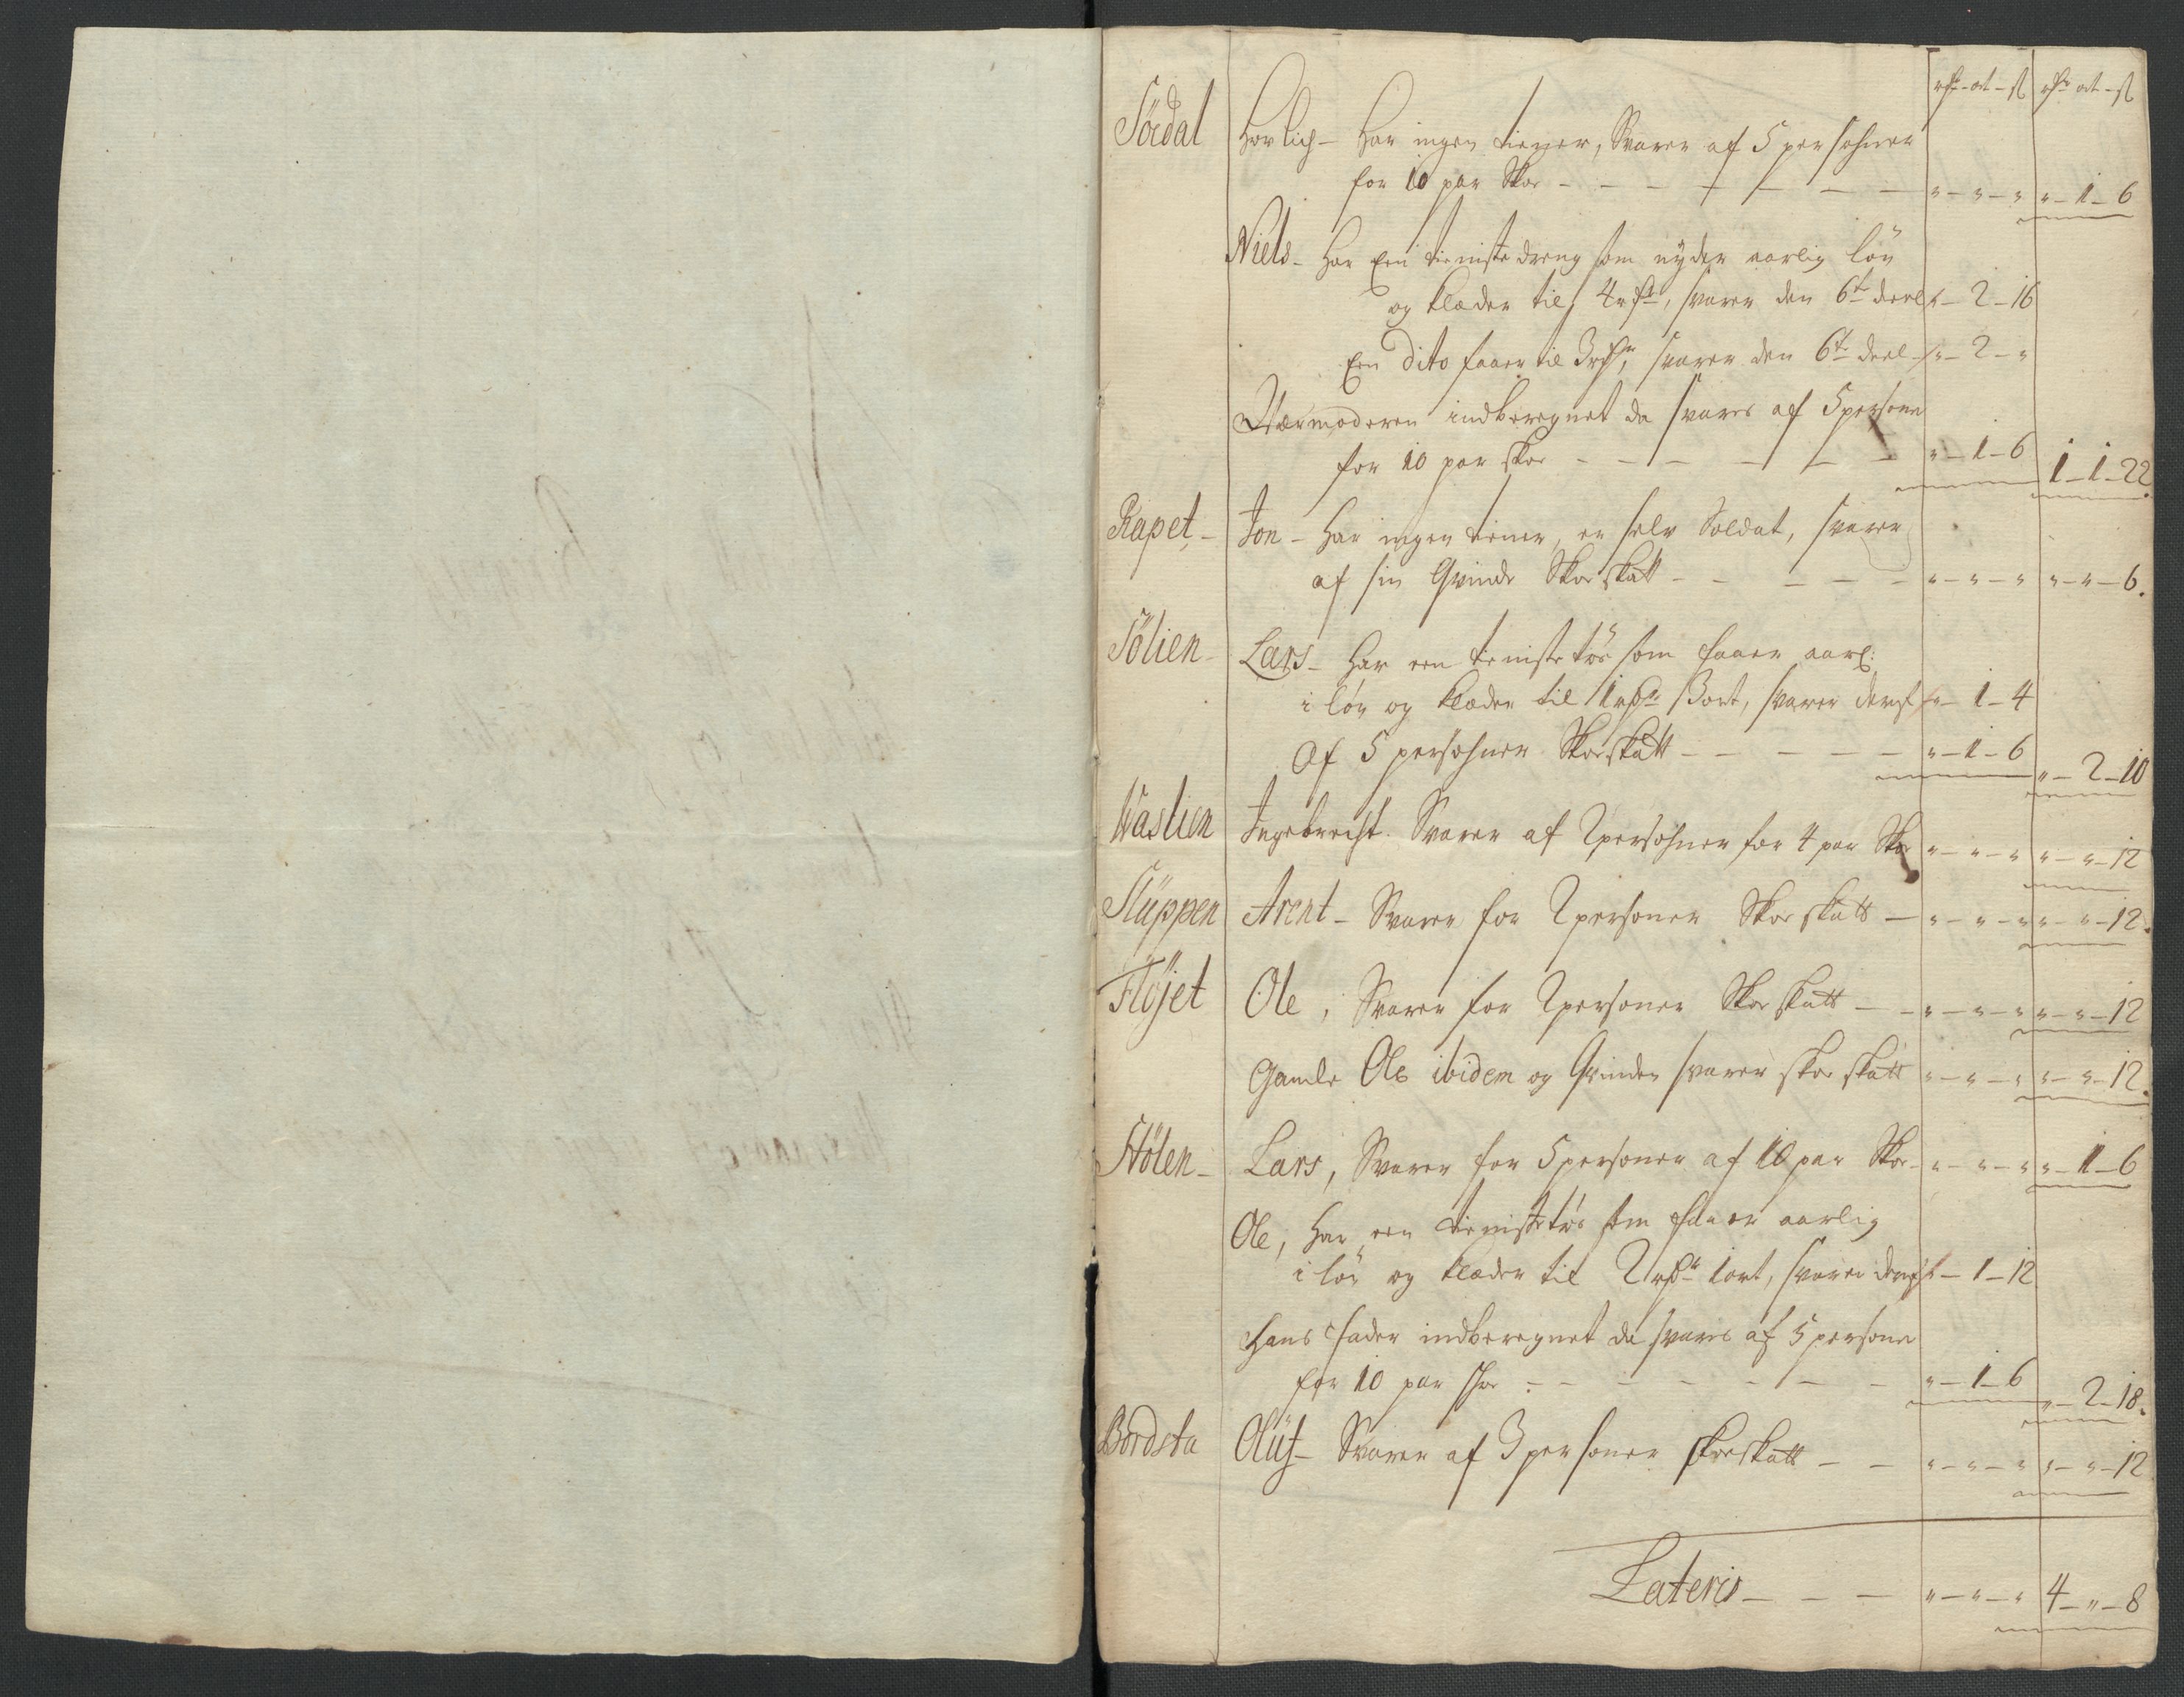 rdr - ort - ß rdr ort - ß
Sördal Horlich - Har ingen tiener, Svarer af 5 persohner
for 10 par Skoe - - - - - - - " - " - " " - 1 - 6
Niels - Har Een tieniste dreng som nyder aarlig lön
og Klæder til 4 rdr, svarer den 6te deel " - 2 - 16
Een dito faaer til 3 rdr, svarer den 6te deel - " - 2 - "
Værmoderen indberegnet da svares af 5 persone
for 10 par skoe - - - - - - " - 1 - 6 1 - 1 - 22
Rapet - Jon - Har ingen tiener, er selv Soldat, svarer
af sin Qvinde Skoe skatt - - - - - " - " - " " - " - 6.
Sölien - Lars - Har een tieniste tös som faaer aarl:
i lön og Klæder til 1 rdr 3 ort, svarer deraf " - 1 - 4
Af 5 persohner Skoe skatt - - - - - " - 1 - 6 " - 2 - 10
Waslien Ingebrecht. Svarer af 2 persohner for 4 par Skoe " - " - " " - " - 12
Slüppen Arent - Svarer for 2 personer Skoe skatt - " - " - " " - " - 12.
Flöjet Ole, Svarer for 2 personer Skoe skatt - - " - " - " " - " - 12
Gamle Ole ibidem og Qvinden svarer skoe skatt " - " - " " - " - 12.
Stölen - Lars, Svarer for 5 personer af 10 par Skoe - " - " - " " - 1 - 6
Ole, Har een tieniste tös som faaer aarlig
i lön og Klæder til 2 rdr 1 ort, svarer deraf " - 1 - 12
Hans Fader indberegnet da svares af 5 persone
for 10 par skoe - - - - - - - " - 1 - 6 " - 2 - 18.
Bordsta Olüf - Svarer af 3 personer skoe skatt - - " - " - " " - " - 12
Lateris - - - " - " - " 4 - " - 8